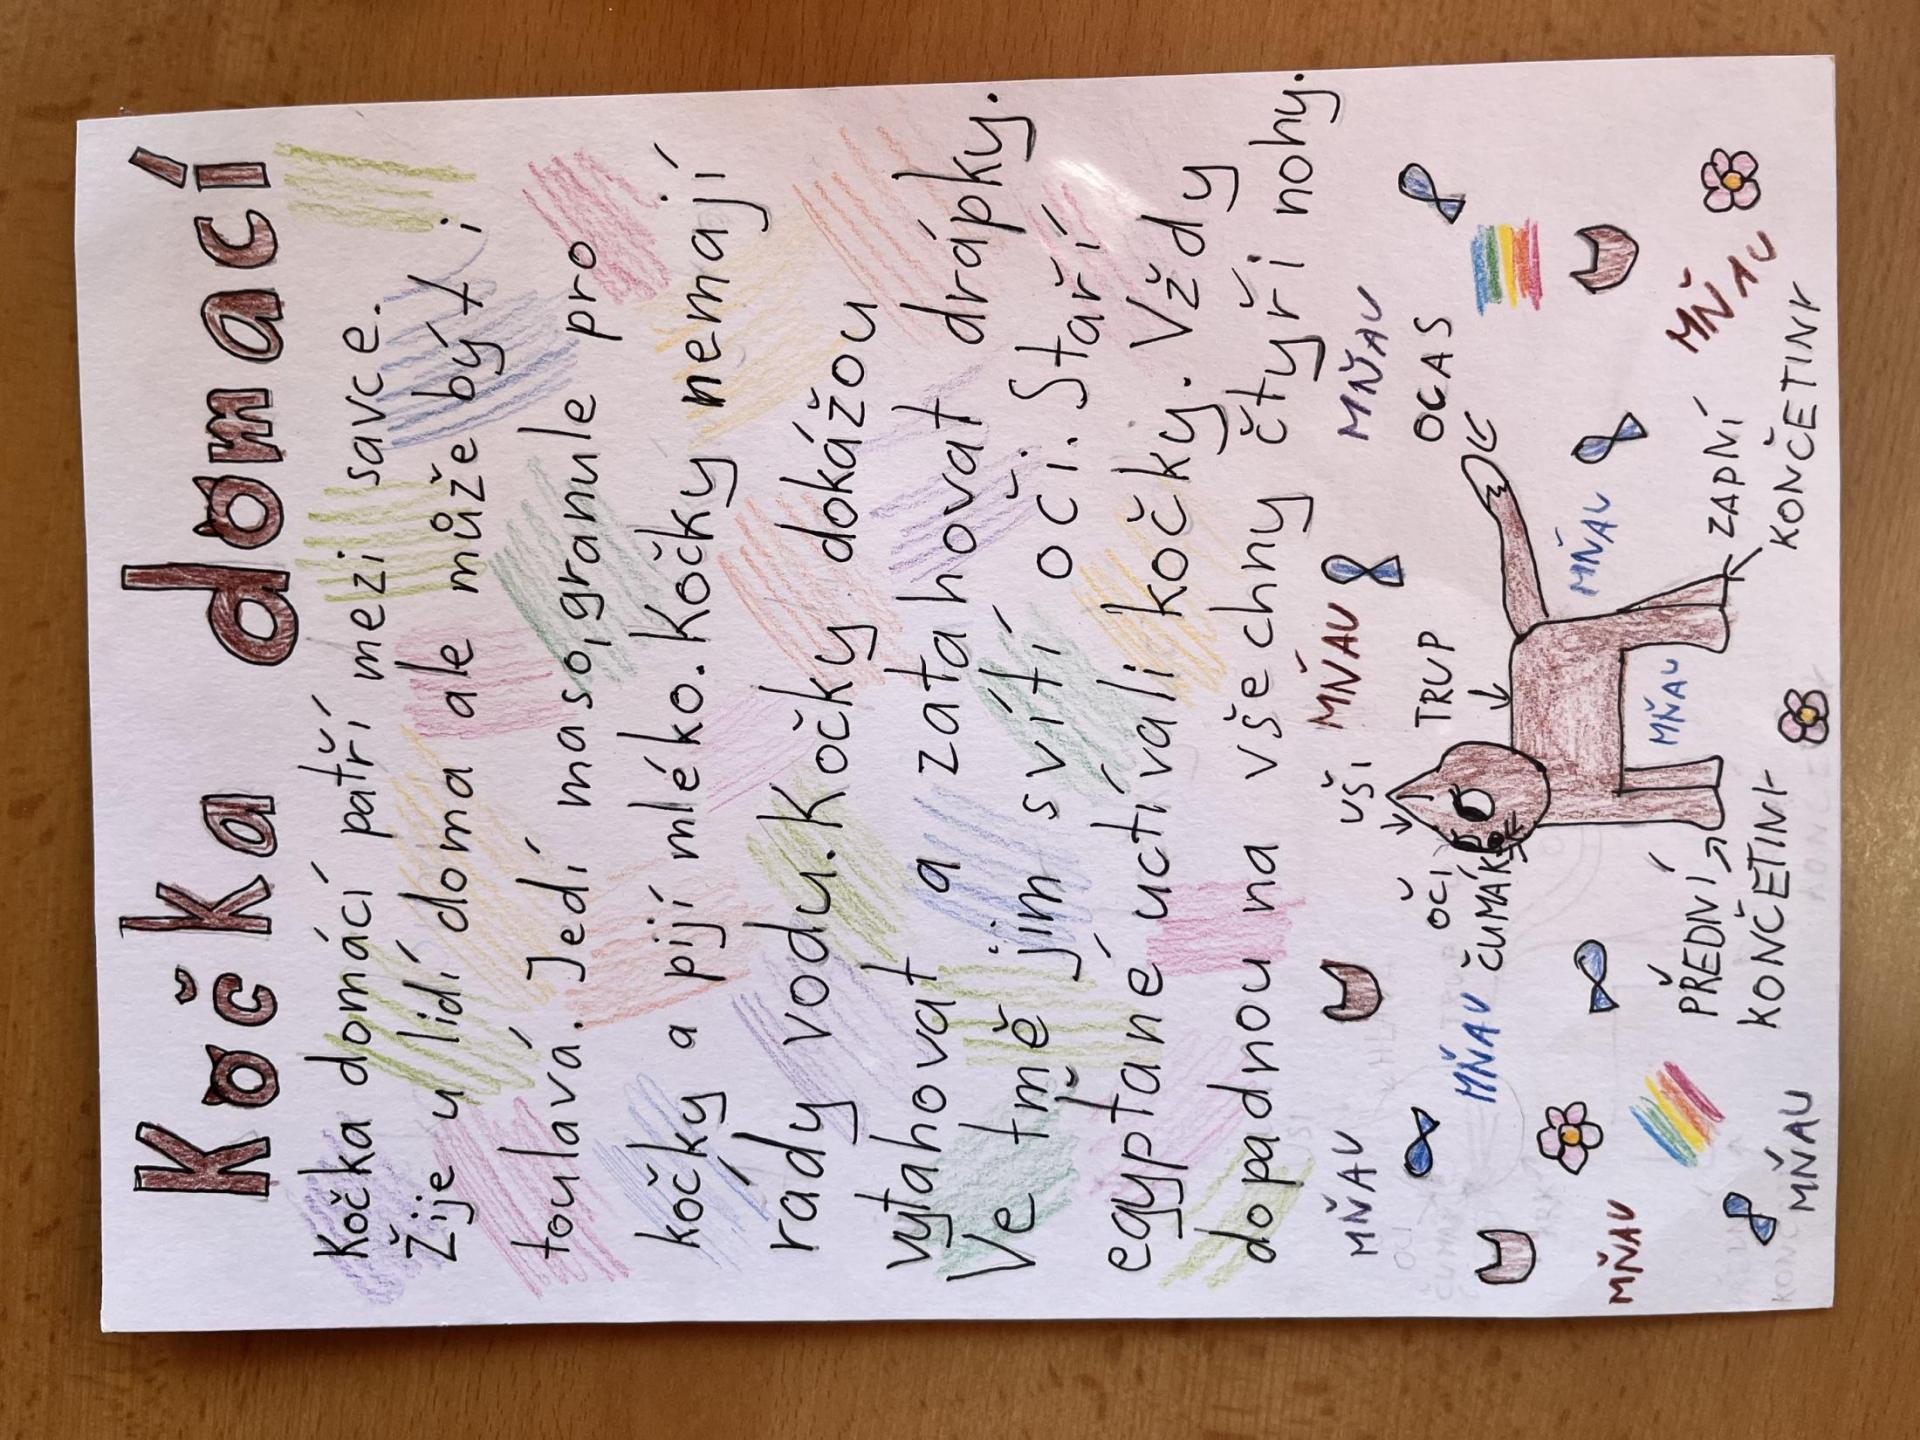 Kočka domácí
Kočka domácí patří mezi savce.
Žije u lidí doma ale může být i
toulavá. Jedí maso, granule pro
kočky a pijí mléko. Kočky nemají
rády vodu. Kočky dokážou
vytahovat a zatahovat drápky.
Ve tmě jim svítí oči. Staří
egyptané uctívali kočky. Vždy
dopadnou na všechny čtyři nohy.
MŇAU
MŇAU
MŇAU
UŠI
TRUP
OCAS
OČI
ČUMÁK
MŇAU
MŇAU
MŇAU
MŇAU
PŘEDNÍ
KONČETINY
ZADNÍ
KONČETINY
MŇAU
MŇAU